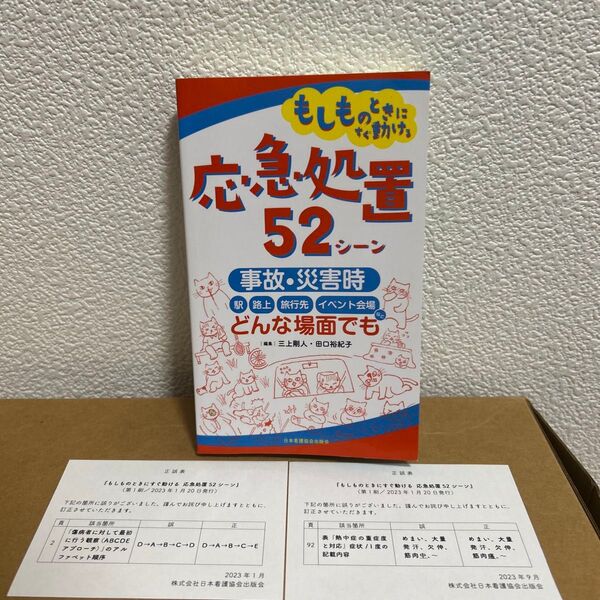 もしものときに
すぐ動ける
応急処置
52シーン
事故・災害時
駅 路上 旅行先 イベント会場
など
どんな場面でも
編集 三上剛人・田口裕紀子
日本看護協会出版会
正誤表
『もしものときにすぐ動ける 応急処置52シーン』
(第1刷/2023年1月20日発行)
下記の箇所に誤りがございました。謹んでお詫び申し上げますとともに、
訂正させていただきます。
頁 該当箇所 誤 正
2 「傷病者に対して最初に行う観察(ABCDEアプローチ)」のアルファベット順序 D→A→B→C→D D→A→B→C→E
2023年1月
株式会社日本看護協会出版会
正誤表
『もしものときにすぐ動ける 応急処置52シーン』
(第1刷/2023年1月20日発行)
下記の箇所に誤りがございました。謹んでお詫び申し上げますとともに、
訂正させていただきます。
頁 該当箇所 誤 正
92 表「熱中症の重症度と対応」症状/I度の記載内容 めまい、大量発汗、欠伸、筋肉中、～ めまい、大量発汗、欠伸、筋肉痛、～
2023年9月
株式会社日本看護協会出版会